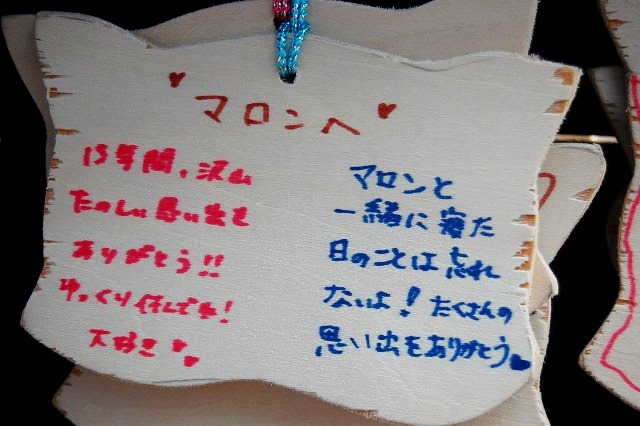 マロンへ
15年間、沢山
たのしい思い出を
ありがとう!!
ゆっくり休んでね!
大好き
マロンと
一緒に寝た
日のことは忘れ
ないよ!たくさんの
思い出をありがとう